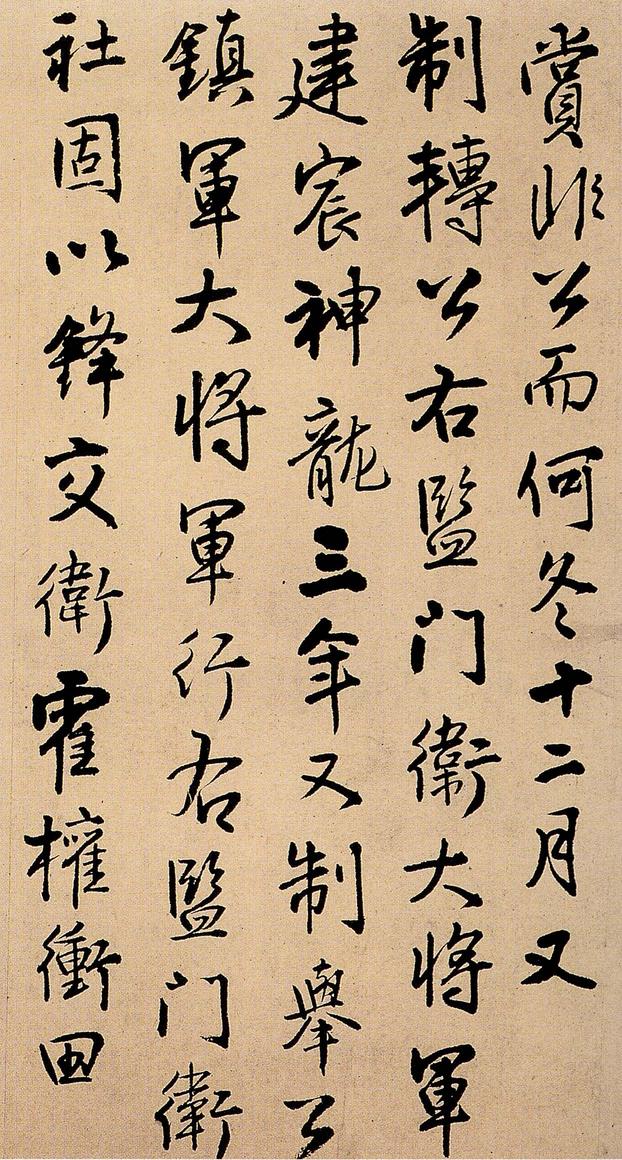 賞非公而何冬十二月又
制轉公右監门衛大將軍
建宸神龍三年又制舉公
鎮軍大將軍行右監门衛
社固以鋒交衛霍權衝田